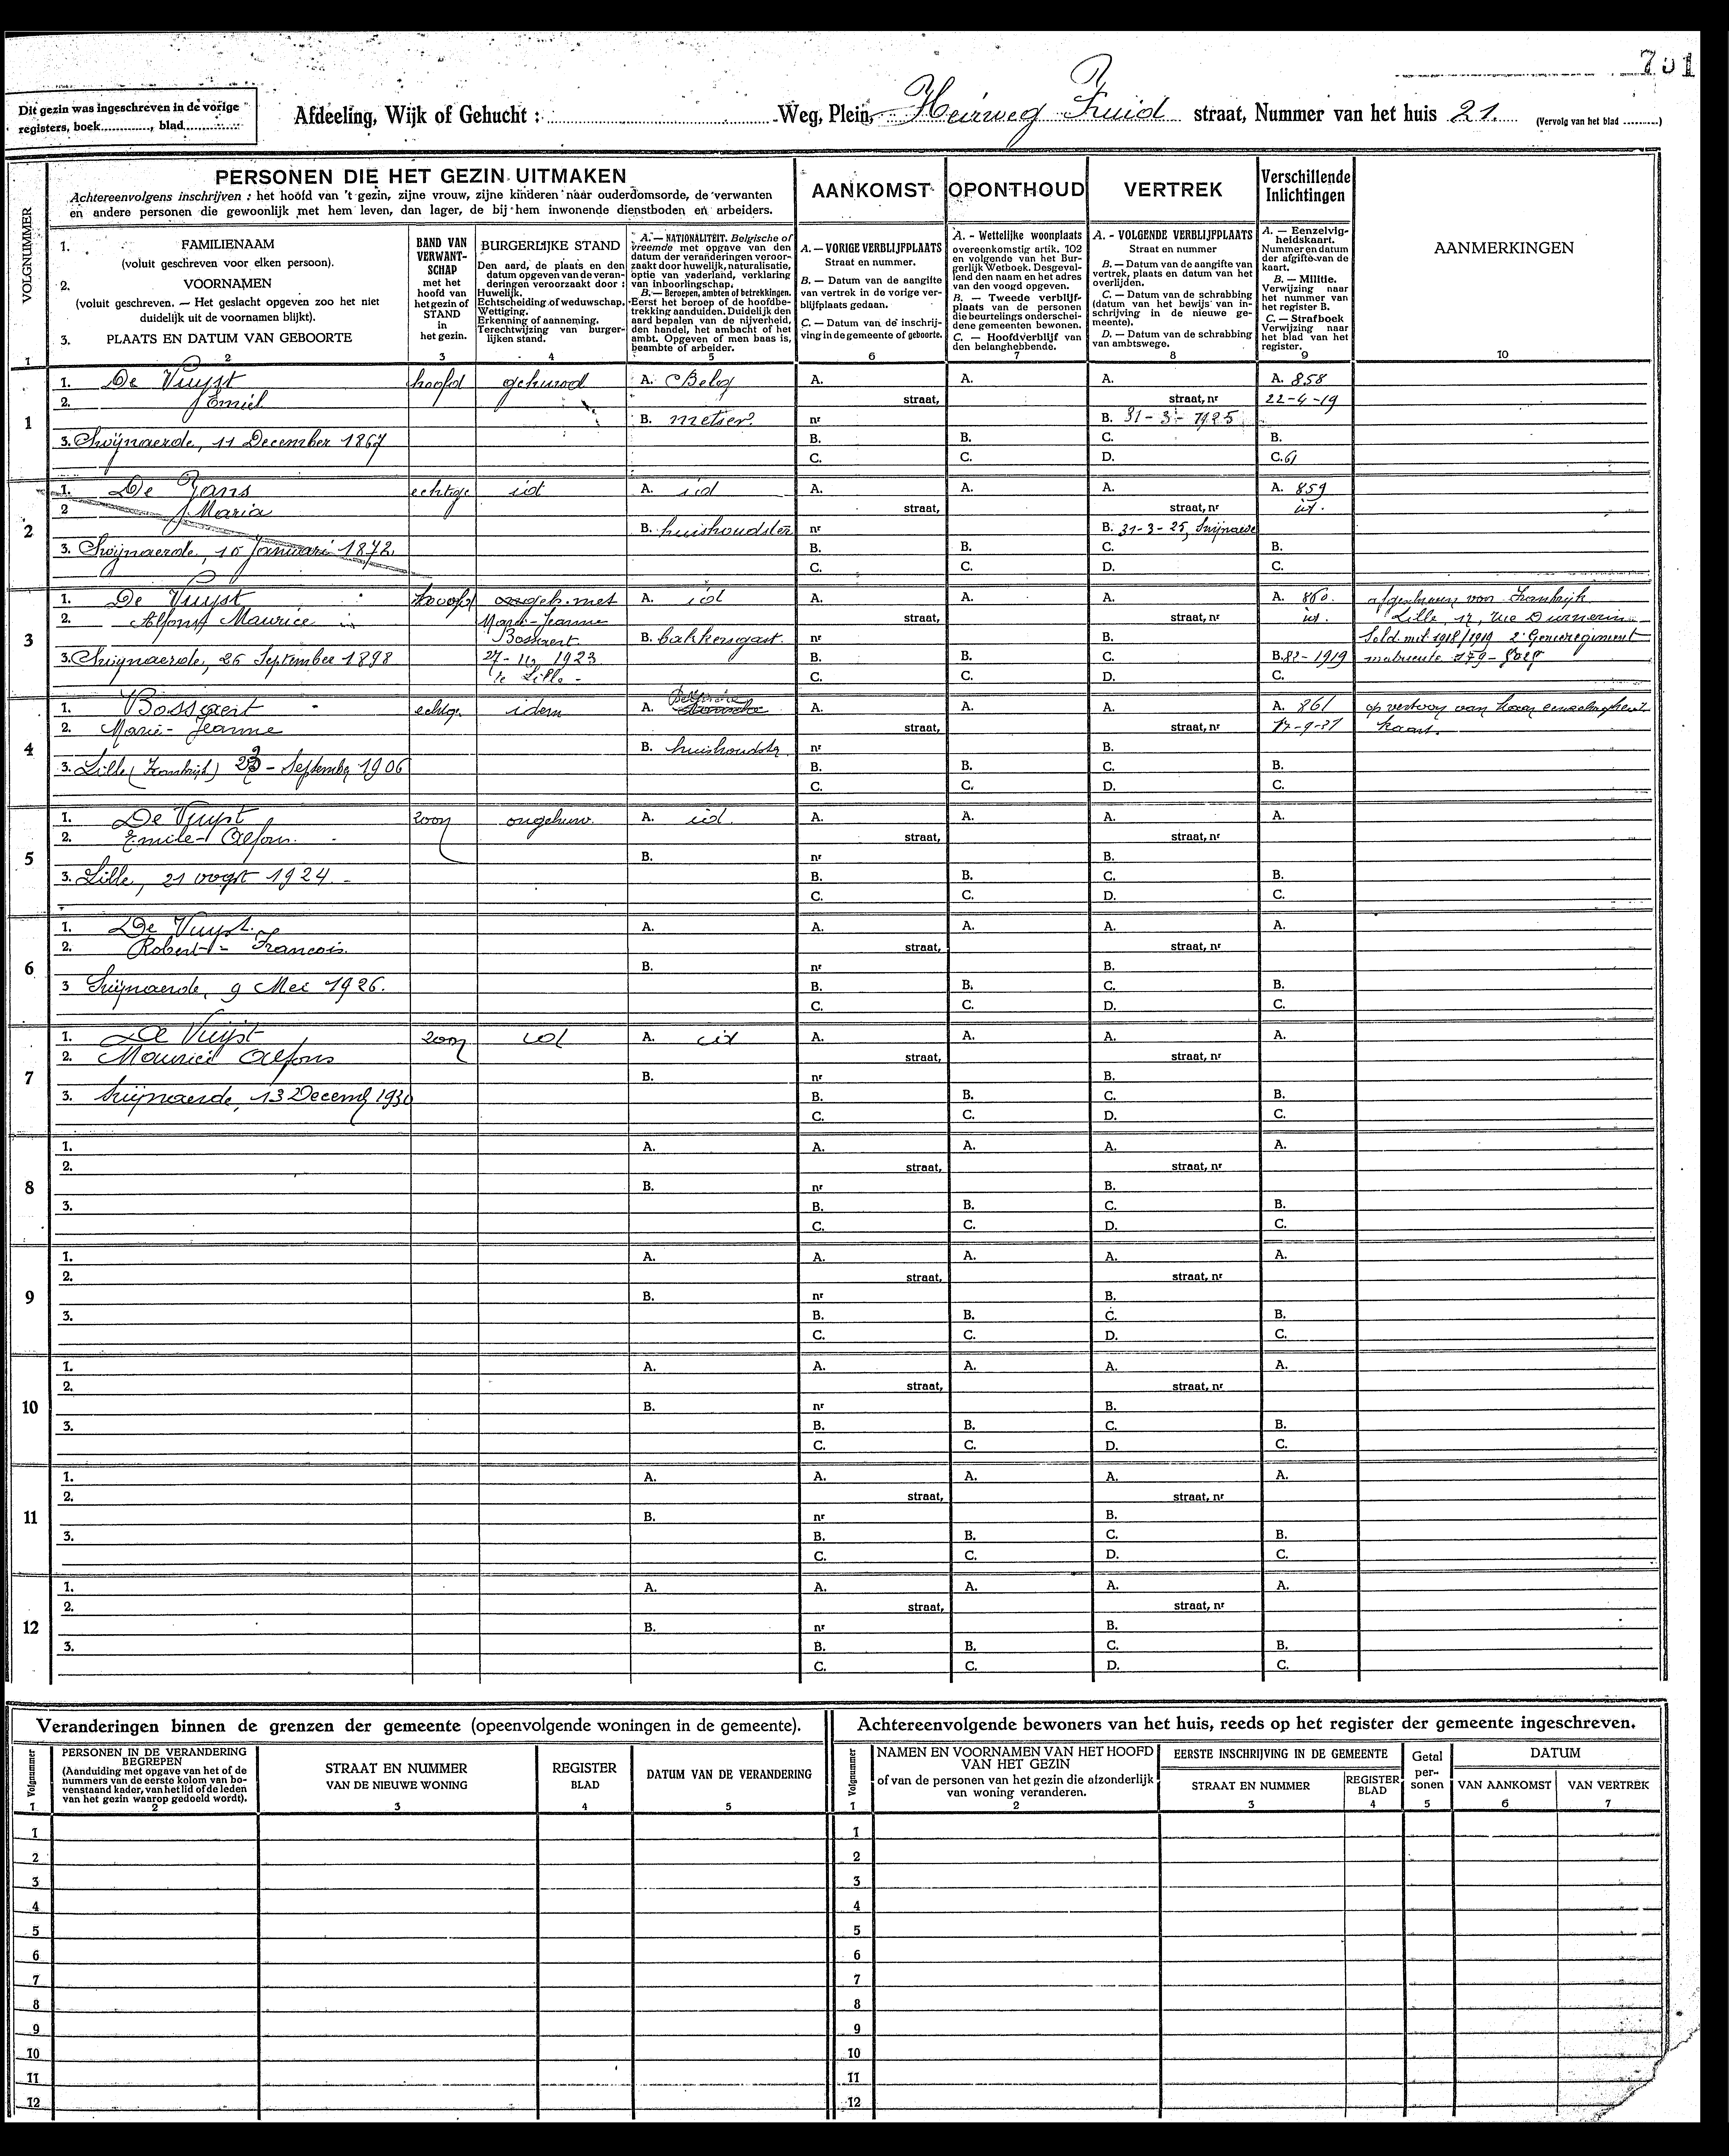 701
Dit gezin was ingeschreven in de vorige
registers, boek............, blad............
Afdeeling, Wijk of Gehucht : ............ Weg, Plein, Heirweg Zuid straat, Nummer van het huis 21. (Vervolg van het blad .........)
VOLGNUMMER
PERSONEN DIE HET GEZIN UITMAKEN
Achtereenvolgens inschrijven : het hoofd van 't gezin, zijne vrouw, zijne kinderen naar ouderdomsorde, de verwanten
en andere personen die gewoonlijk met hem leven, dan lager, de bij hem inwonende dienstboden en arbeiders.
AANKOMST
OPONTHOUD
VERTREK
Verschillende
Inlichtingen
1. FAMILIENAAM
(voluit geschreven voor elken persoon).
2. VOORNAMEN
(voluit geschreven. — Het geslacht opgeven zoo het niet
duidelijk uit de voornamen blijkt).
3. PLAATS EN DATUM VAN GEBOORTE
BAND VAN
VERWANT-
SCHAP
met het
hoofd van
het gezin of
STAND
in
het gezin.
BURGERLIJKE STAND
Den aard, de plaats en den
datum opgeven van de veran-
deringen veroorzaakt door :
Huwelijk.
Echtscheiding of weduwschap.
Wettiging.
Erkenning of aanneming.
Terechtwijzing van burger-
lijken stand.
A. — NATIONALITEIT. Belgische of
vreemde met opgave van den
datum der veranderingen veroor-
zaakt door huwelijk, naturalisatie,
optie van vaderland, verklaring
van inboorlingschap.
B. — Beroepen, ambten of betrekkingen.
Eerst het beroep of de hoofdbe-
trekking aanduiden. Duidelijk den
aard bepalen van de nijverheid,
den handel, het ambacht of het
ambt. Opgeven of men baas is,
beambte of arbeider.
A. — VORIGE VERBLIJFPLAATS
Straat en nummer.
B. — Datum van de aangifte
van vertrek in de vorige ver-
blijfplaats gedaan.
C. — Datum van de inschrij-
ving in de gemeente of geboorte.
A. - Wettelijke woonplaats
overeenkomstig artik. 102
en volgende van het Bur-
gerlijk Wetboek. Desgeval-
lend den naam en het adres
van den voogd opgeven.
B. — Tweede verblijf-
plaats van de personen
die beurtelings onderschei-
dene gemeenten bewonen.
C. — Hoofdverblijf van
den belanghebbende.
A. - VOLGENDE VERBLIJFPLAATS
Straat en nummer
B. — Datum van de aangifte van
vertrek, plaats en datum van het
overlijden.
C. — Datum van de schrabbing
(datum van het bewijs van in-
schrijving in de nieuwe ge-
meente).
D. — Datum van de schrabbing
van ambtswege.
A. — Eenzelvig-
heidskaart.
Nummer en datum
der afgifte van de
kaart.
B. — Militie.
Verwijzing naar
het nummer van
het register B.
C. — Strafboek
Verwijzing naar
het blad van het
register.
AANMERKINGEN
1 2 3 4 5 6 7 8 9 10
1
1. De Vuyst hoofd gehuwd A. Belg A. A. A. A. 858
2. Emiel straat, straat, nr 22-4-19
B. metser nr B. 31-3-1925
3. Swijnaerde, 11 December 1867 B. B. C. B.
C. C. D. C. 61
2
1. De Jans echtge id A. id A. A. A. A. 859
2 Maria straat, straat, nr id.
B. huishoudster nr B. 31-3-25, Swijnaerde
3. Swijnaerde, 10 Januari 1872. B. B. C. B.
C. C. D. C.
3
1. De Vuyst hoofd ongeh. met A. id A. A. A. A. 860. afgeschreven van Frankrijk
2. Alfons Maurice Marie-Jeanne straat, straat, nr id. Lille, 17, rue
Bossaert B. bakkersgast. nr B. Sold. mit 1918/1919 2e Genieregiment
3. Swijnaerde, 26 September 1898 27-10 1923 B. B. C. B. 82-1919
te Lille - C. C. D. C.
4
Belgische
1. Bossaert echtge idem A. A. A. A. A. 861 op vertoon van haar eenzelvigheids
2. Marie-Jeanne straat, straat, nr 17-9-31 kaart.
B. huishoudstr nr B.
3. Lille (Frankrijk) 23 - September 1906 B. B. C. B.
C. C. D. C.
5
1. De Vuyst zoon ongehuw. A. id. A. A. A. A.
2. Emile-Alfons. straat, straat, nr
B. nr B.
3. Lille, 21 oogst 1924.- B. B. C. B.
C. C. D. C.
6
1. De Vuyst. A. A. A. A. A.
2. Robert - Francois. straat, straat, nr
B. nr B.
3 Swijnaerde, 9 Mei 1926. B. B. C. B.
C. C. D. C.
7
1. De Vuyst zoon id A. id A. A. A. A.
2. Maurice Alfons straat, straat, nr
B. nr B.
3. Swijnaerde, 13 Decemb 1930 B. B. C. B.
C. C. D. C.
8
1. A. A. A. A. A.
2. straat, straat, nr
B. nr B.
3. B. B. C. B.
C. C. D. C.
9
1. A. A. A. A. A.
2. straat, straat, nr
B. nr B.
3. B. B. C. B.
C. C. D. C.
10
1. A. A. A. A. A.
2. straat, straat, nr
B. nr B.
3. B. B. C. B.
C. C. D. C.
11
1. A. A. A. A. A.
2. straat, straat, nr
B. nr B.
3. B. B. C. B.
C. C. D. C.
12
1. A. A. A. A. A.
2. straat, straat, nr
B. nr B.
3. B. B. C. B.
C. C. D. C.
Veranderingen binnen de grenzen der gemeente (opeenvolgende woningen in de gemeente).
Volgnummer
PERSONEN IN DE VERANDERING
BEGREPEN
(Aanduiding met opgave van het of de
nummers van de eerste kolom van bo-
venstaand kader, van het lid of de leden
van het gezin waarop gedoeld wordt).
STRAAT EN NUMMER
VAN DE NIEUWE WONING
REGISTER
BLAD
DATUM VAN DE VERANDERING
1 2 3 4 5
1
2
3
4
5
6
7
8
9
10
11
12
Achtereenvolgende bewoners van het huis, reeds op het register der gemeente ingeschreven.
Volgnummer
NAMEN EN VOORNAMEN VAN HET HOOFD
VAN HET GEZIN
of van de personen van het gezin die afzonderlijk
van woning veranderen.
EERSTE INSCHRIJVING IN DE GEMEENTE
STRAAT EN NUMMER
REGISTER
BLAD
Getal
per-
sonen
DATUM
VAN AANKOMST
VAN VERTREK
1 2 3 4 5 6 7
1
2
3
4
5
6
7
8
9
10
11
12